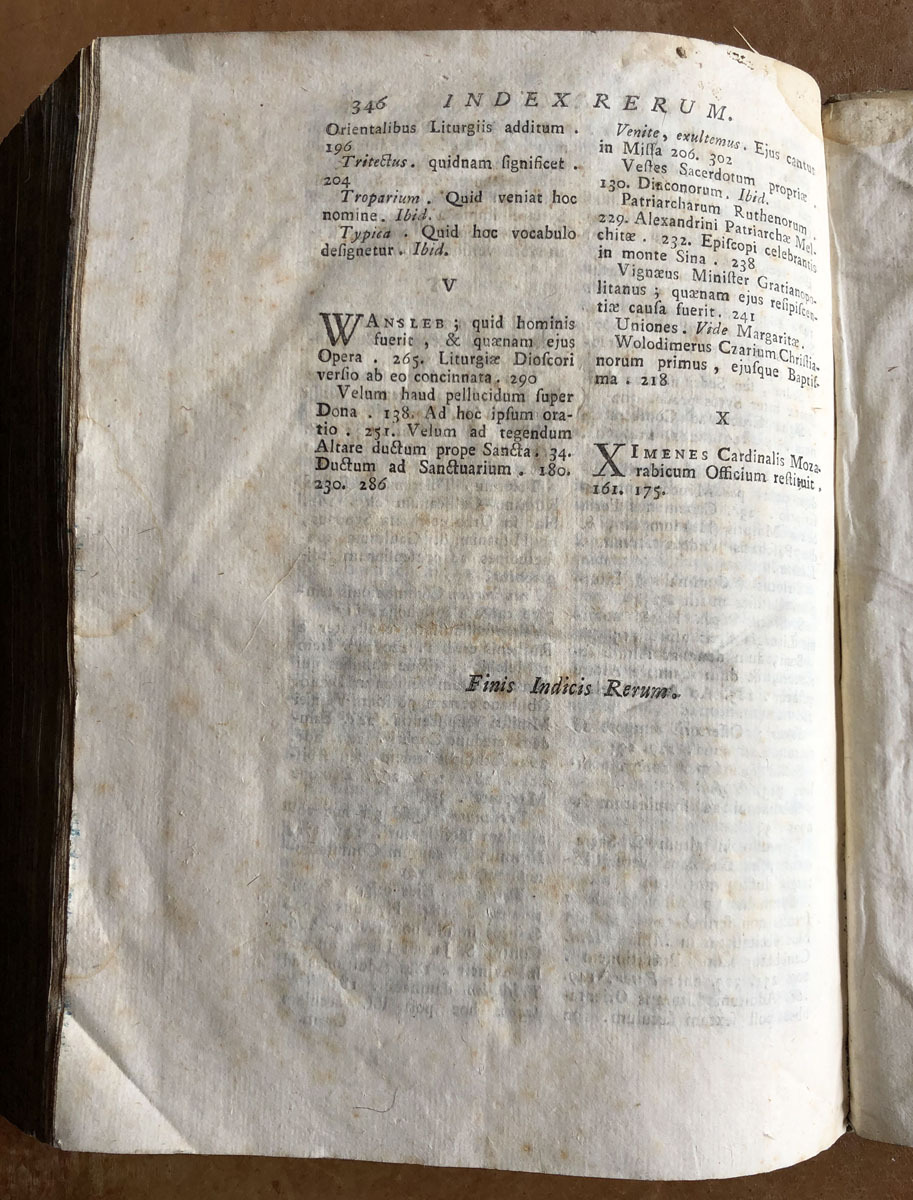 346 INDEX RERUM.
Orientalibus Liturgiis additum .
196
Tritectus . quidnam ſignificet .
204
Troparium . Quid veniat hoc
nomine . Ibid.
Typica . Quid hoc vocabulo
deſignetur . Ibid.
V
WANSLEB ; quid hominis
fuerit , & quænam ejus
Opera . 265. Liturgiæ Dioſcori
verſio ab eo concinnata . 290
Velum haud pellucidum ſuper
Dona . 138. Ad hoc ipſum ora-
tio . 251. Velum ad tegendum
Altare ductum prope Sancta . 34.
Ductum ad Sanctuarium . 180.
230. 286
Venite , exultemus . Ejus cantus
in Miſſa 206. 302
Veſtes Sacerdotum propriæ .
130. Diaconorum . Ibid.
Patriarcharum Ruthenorum .
229. Alexandrini Patriarchæ Mel-
chitæ . 232. Epiſcopi celebrantis
in monte Sina . 238
Vignæus Miniſter Gratianopo-
litanus ; quænam ejus reſipiſcen-
tiæ cauſa fuerit . 241
Uniones . Vide Margaritæ .
Wolodimerus Czarium Chriſtia-
norum primus , ejuſque Baptiſ-
ma . 218
X
XIMENES Cardinalis Moza-
rabicum Officium reſtituit .
161. 175.
Finis Indicis Rerum.